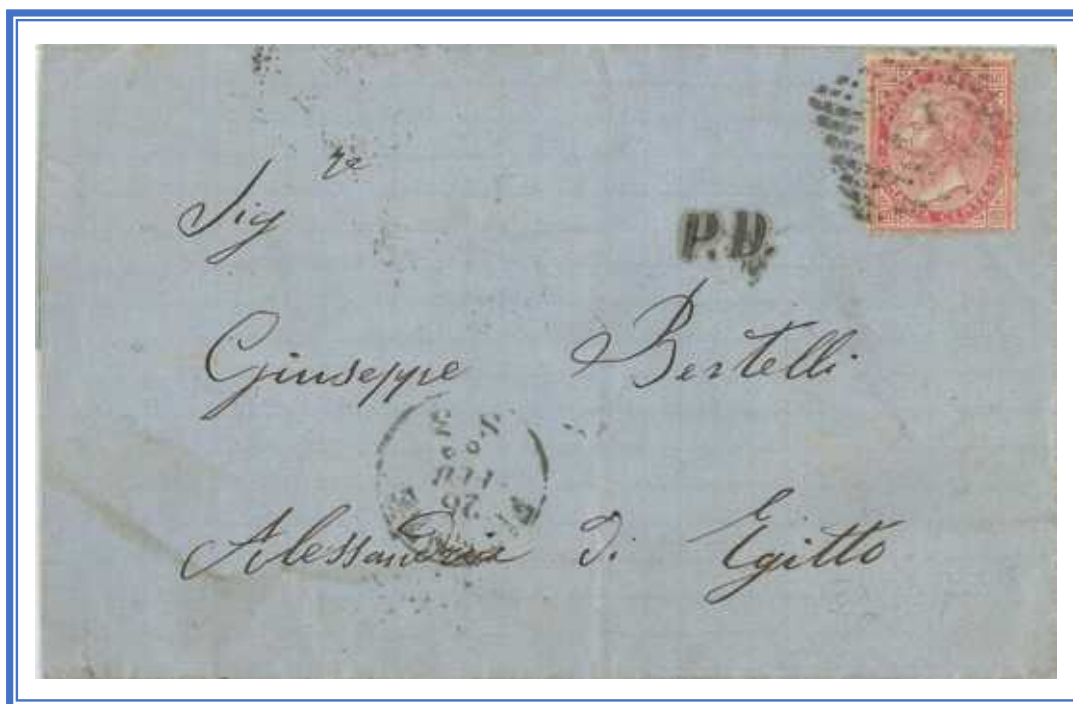 Sig re
P.D.
Giuseppe Bertelli
Alessandria di Egitto